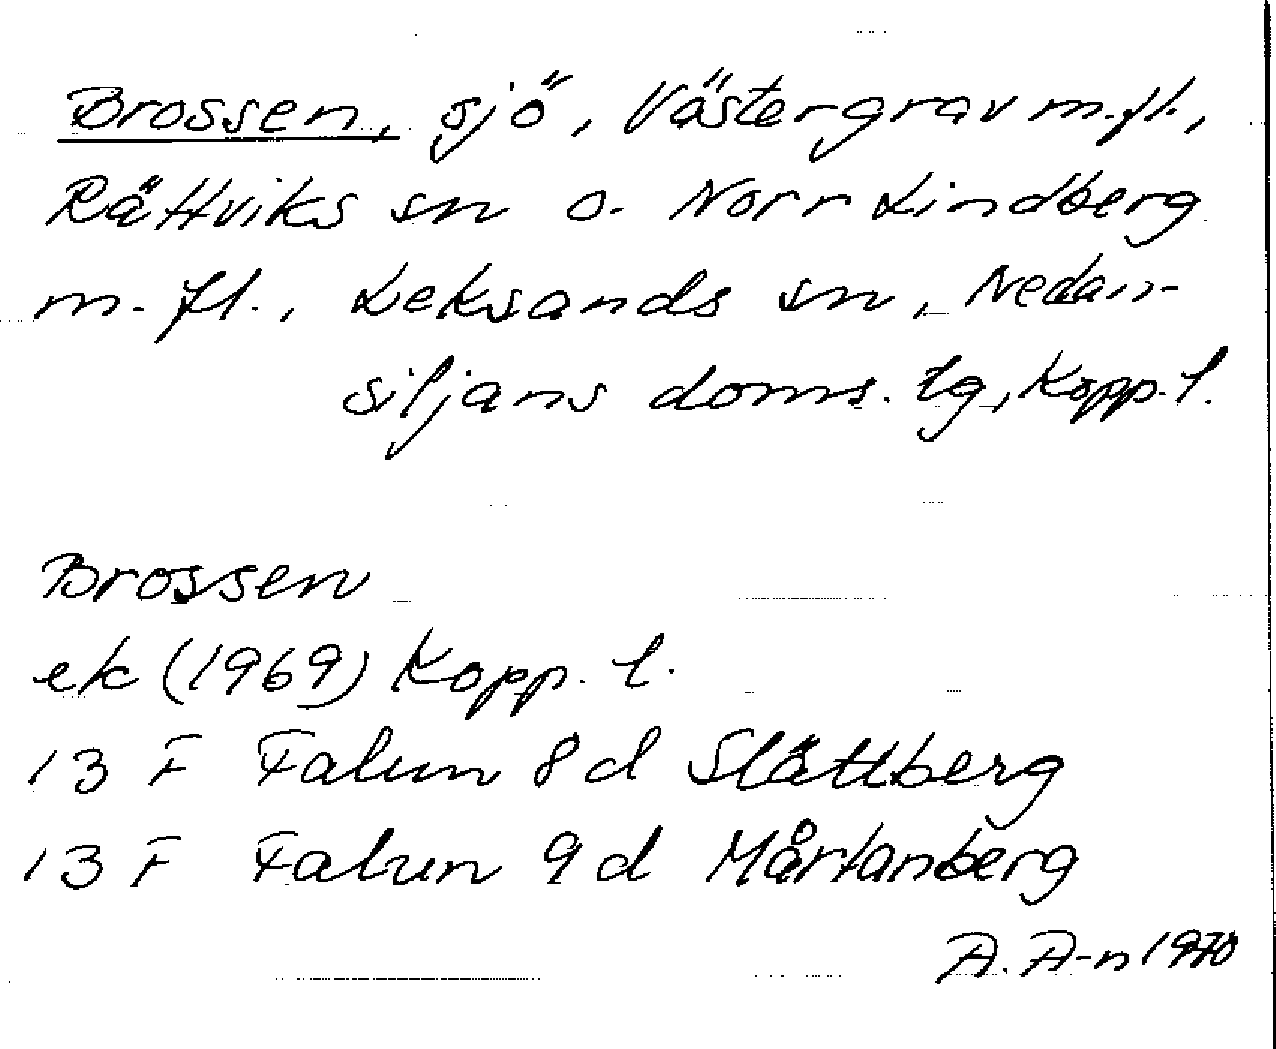 Brossen, sjö, Västergrav m.fl.,
Rättviks sn o. Norr Lindberg
m.fl., Leksands sn, Nedan-
siljans doms. lg, Kopp. l.
Brossen
ek (1969) Kopp. l.
13 F Falun 8 d Slättberg
13 F Falun 9 d Mårtanberg
A. A-n 1970